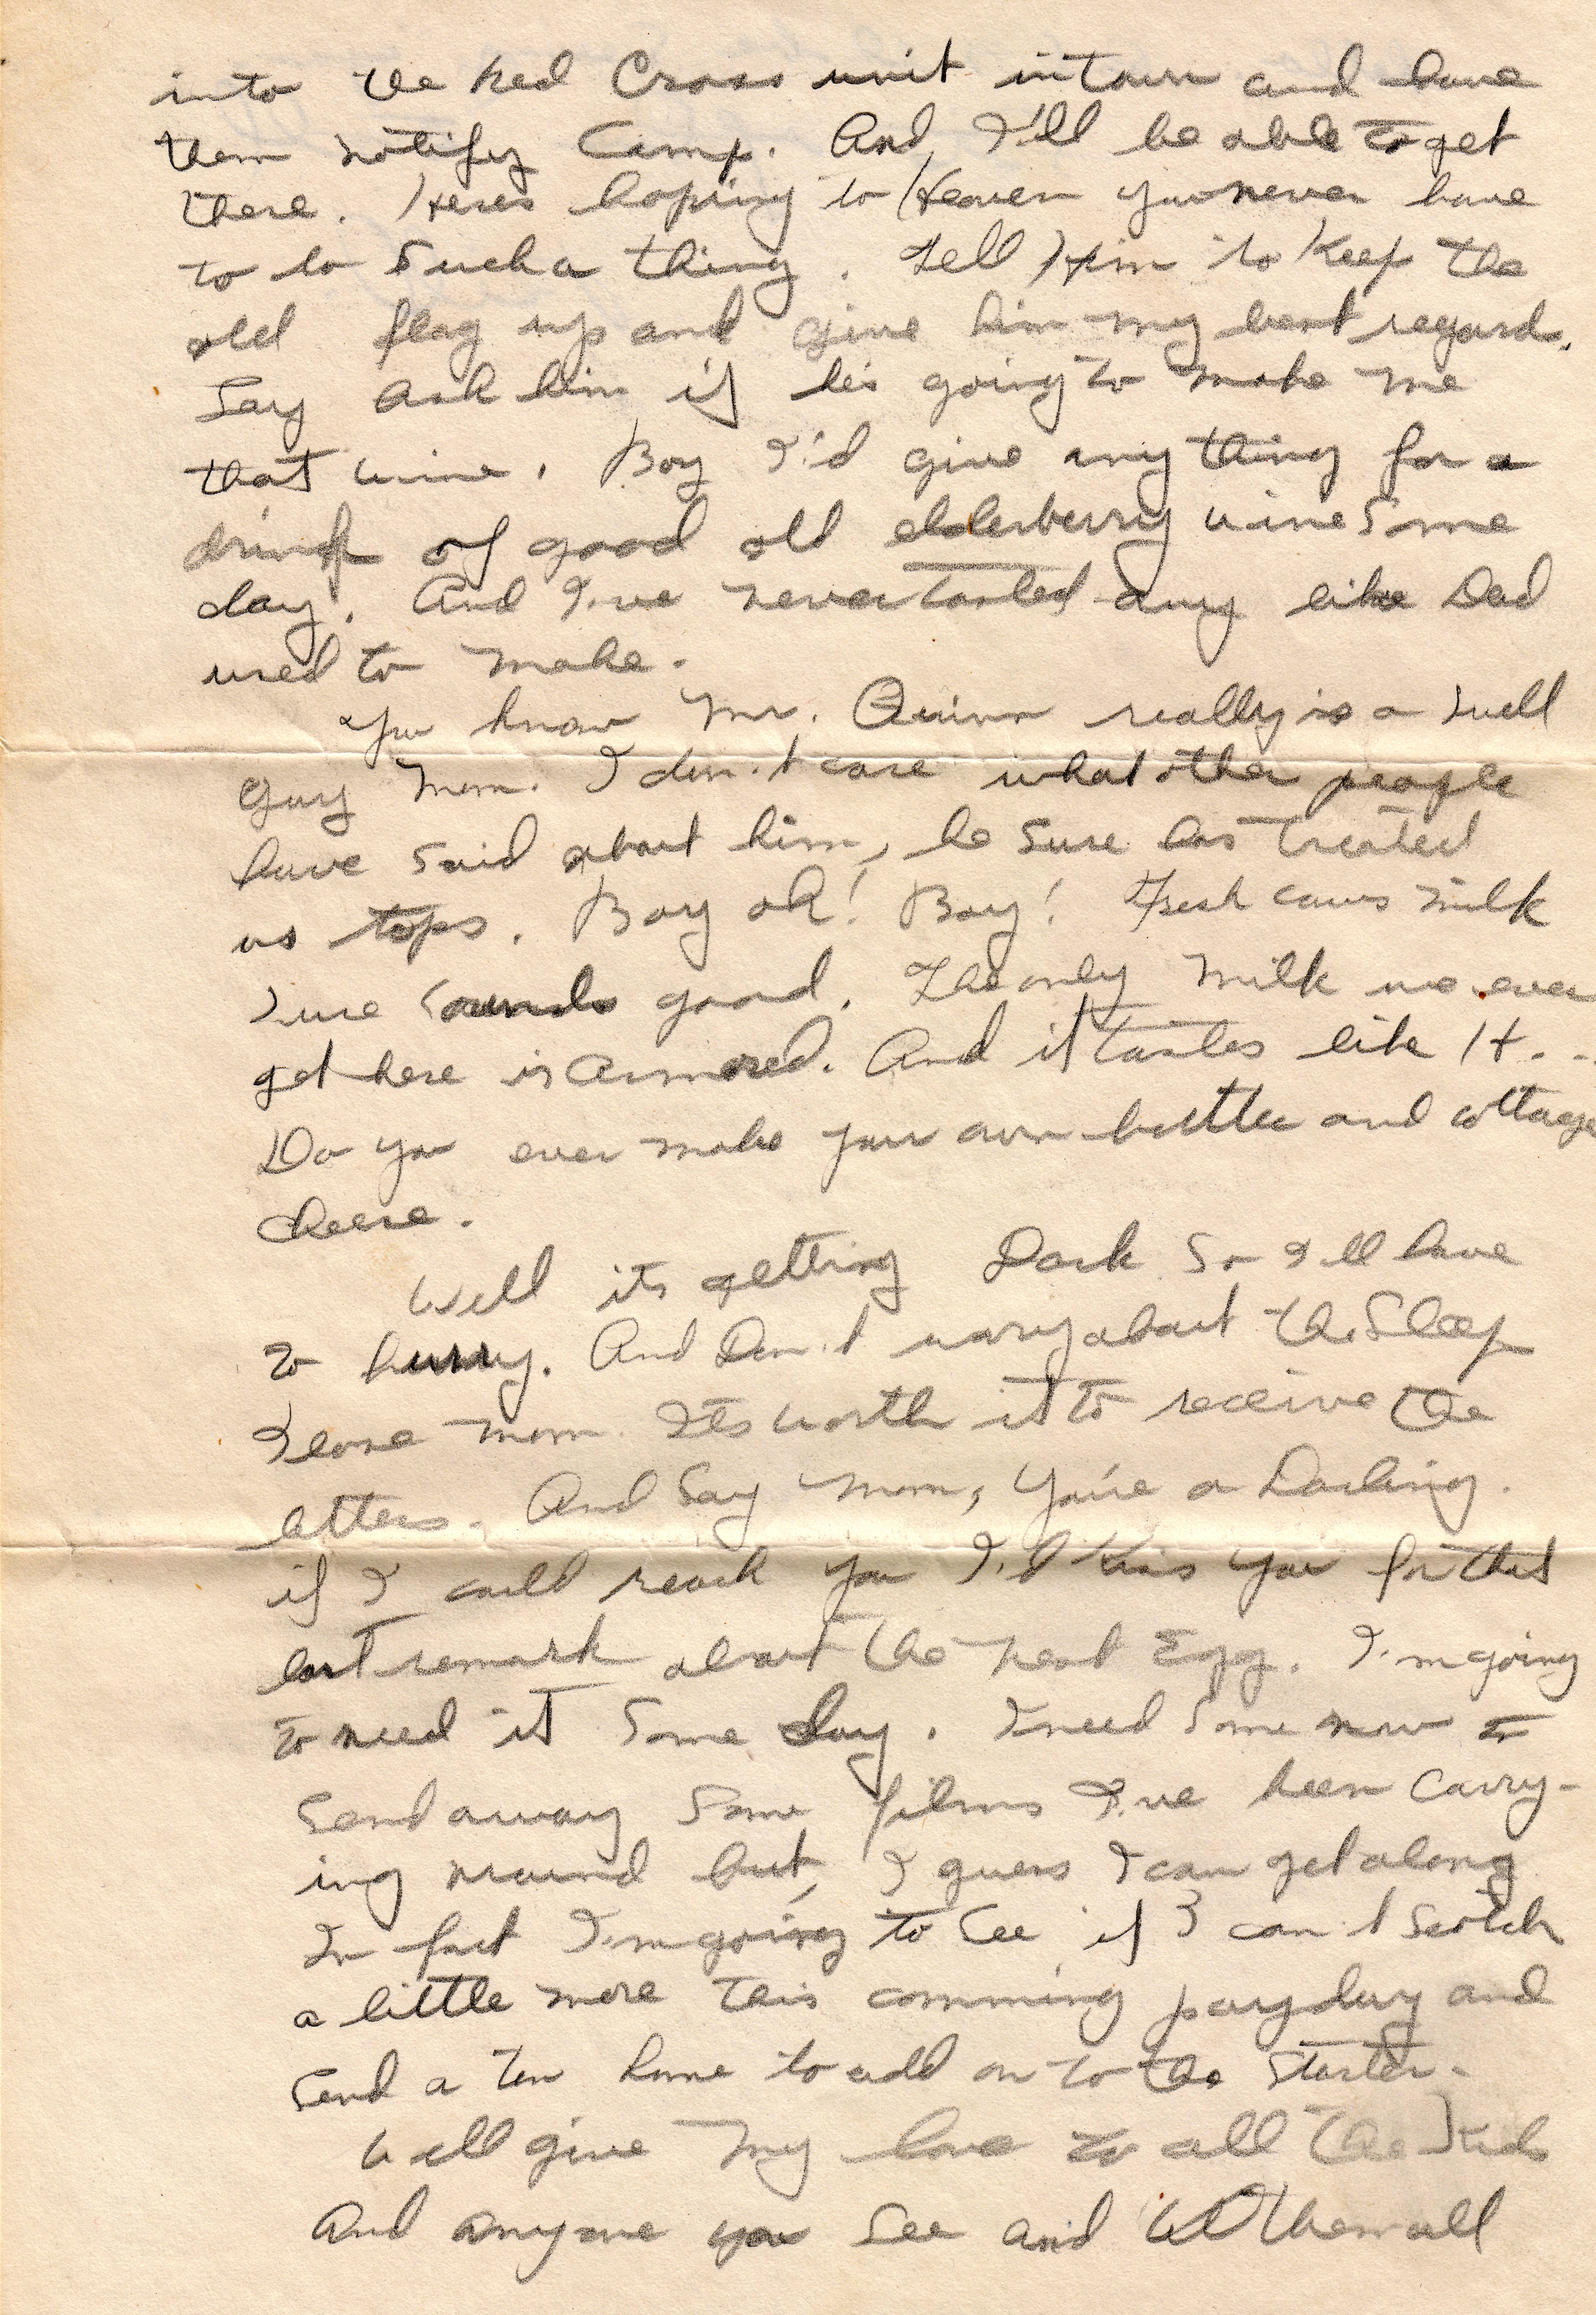 into the Red Cross unit in town and have
them notify Camp. And, I'll be able to get
there. Heres hoping to Heaven you never have
to to Such a thing. Tell Him to Keep the
old flag up and give him my best regard.
Say ask him if he's going to make me
that wine. Boy I'd give any thing for a
drink of good old elderberry wine Some
day. And I've never tasted any like Dad
used to make.
You know Mr. Quinn really is a swell
guy Mom. I don't care what other people
have said about him, he Sure has treated
us tops. Boy oh! Boy! Fresh cows milk
sure Sounds good. The only milk we ever
get here is Armored. And it tastes like H..
Do you ever make your own butter and cottage
cheese.
Well its getting Dark So I'll have
to hurry. And Don't worry about the Sleep
I lose Mom. Its worth it to receive the
letters. And Say Mom, You're a Darling.
if I could reach you I'd Kiss you for that
last remark about the nest Egg. I'm going
to need it Some Day. I need Some now to
Send away Some films I've been Carry-
ing around but, I guess I can get along
In fact I'm going to See if I can't Scotch
a little more this comming payday and
Send a ten home to add on to the Starter.
Well give my love to all the Kids
And anyone you See and tell them all